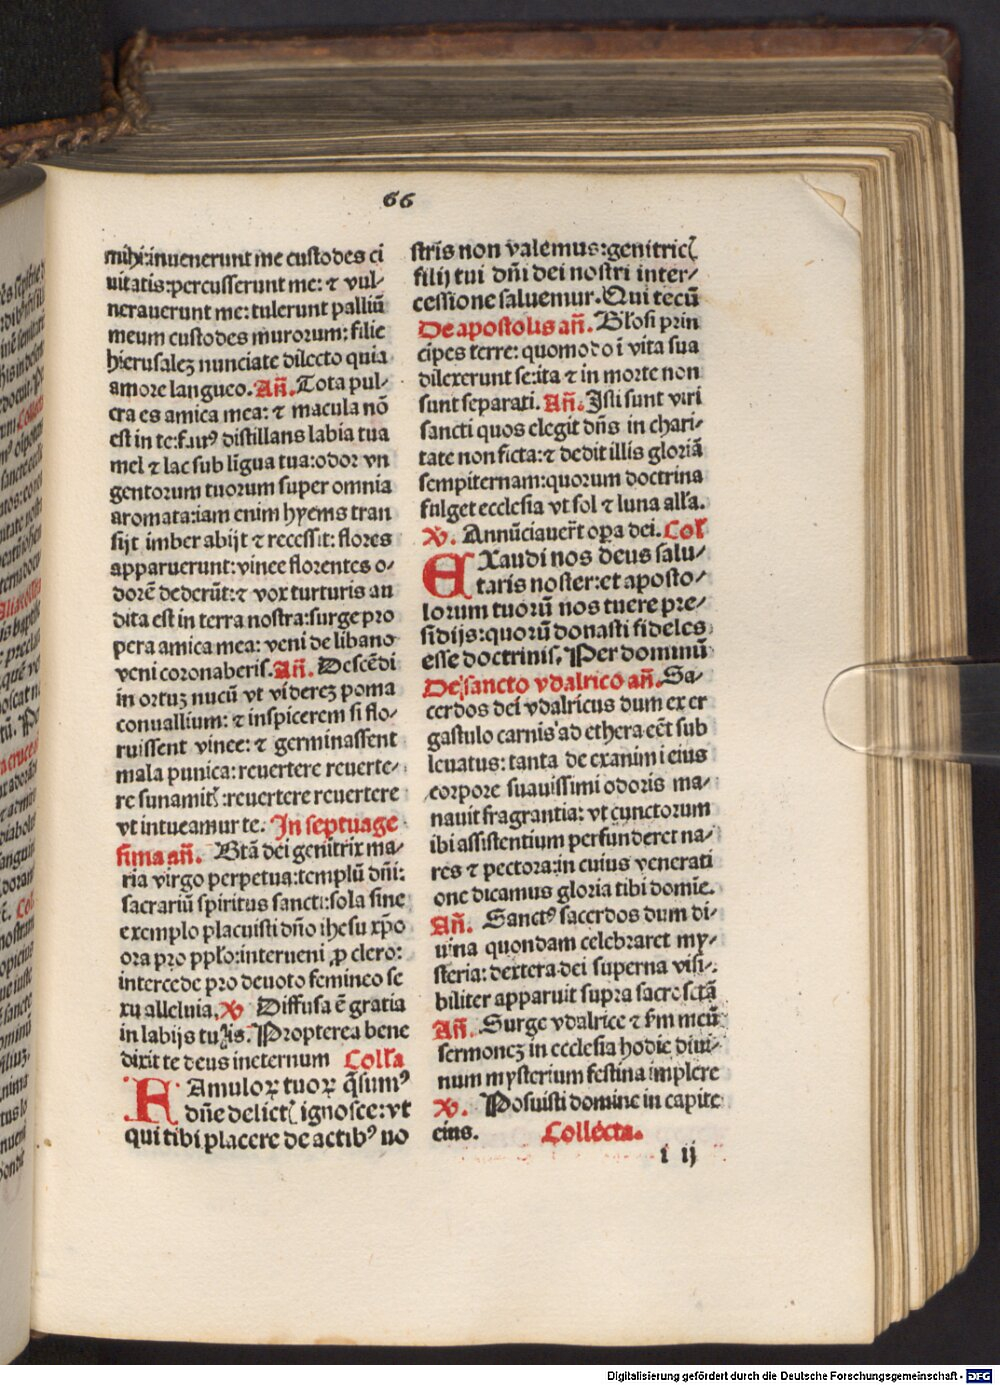 66
mihi:inuenerunt me custodes ci
uitatis:percusserunt me: ⁊ vul⸗
nerauerunt me: tulerunt palliū
meum custodes murorum: filie
hierusaleꝫ nunciate dilecto quia
amore langueo. Añ. Tota pul⸗
cra es amica mea: ⁊ macula nō
est in te: fauꝰ distillans labia tua
mel ⁊ lac sub ligua tua: odor vn
gentorum tuorum super omnia
aromata: iam enim hyems tran
sijt imber abijt ⁊ recessit: flores
apparuerunt: vinee florentes o⸗
dorē dederūt: ⁊ vox turturis au
dita est in terra nostra: surge pro
pera amica mea: veni de libano
veni coronaberis. Añ. Descēdi
in ortuꝫ nucū vt videreꝫ poma
conuallium: ⁊ inspicerem si flo⸗
ruissent vinee: ⁊ germinassent
mala punica: reuertere reuerte⸗
re sunamitꝭ: reuertere reuertere
vt intueamur te. In septuage
sima añ. Btā dei genitrix ma⸗
ria virgo perpetua: templū dñi:
sacrariū spiritus sancti: sola sine
exemplo placuisti dño ihesu xp̄o
ora pro pplo: interueni ꝓ clero:
intercede pro deuoto femineo se
xu alleluia, ℣ Diffusa ē gratia
in labijs tuis. Propterea bene
dixit te deus ineternum Coll'a
FAmuloꝝ tuoꝝ q̄sumꝰ
dñe delictꝭ ignosce: vt
qui tibi placere de actibꝰ no
stris non valemus: genitricꝭ
filij tui dñi dei nostri inter⸗
cessione saluemur. Qui tecū
De apostolis añ. Gl'osi prin
cipes terre: quomodo ī vita sua
dilexerunt se: ita ⁊ in morte non
sunt separati. Añ. Isti sunt viri
sancti quos elegit dñs in chari⸗
tate non ficta: ⁊ dedit illis gloriā
sempiternam: quorum doctrina
fulget ecclesia vt sol ⁊ luna all'a.
℣. Annūciauer̄t oꝑa dei. Col'
EXaudi nos deus salu⸗
taris noster: et aposto⸗
lorum tuorū nos tuere pre⸗
sidijs: quorū donasti fideles
esse doctrinis. Per dominū
De sancto vdalrico añ. Sa⸗
cerdos dei vdalricus dum ex er
gastulo carnis ad ethera eēt sub
leuatus: tanta de exanimi eius
corpore suauissimi odoris ma⸗
nauit fragrantia: vt cunctorum
ibi assistentium perfunderet na⸗
res ⁊ pectora: in cuius venerati
one dicamus gloria tibi domīe.
Añ. Sanctꝰ sacerdos dum di⸗
uina quondam celebraret my⸗
steria: dextera dei superna visi⸗
biliter apparuit supra sacrosctā
Añ. Surge vdalrice ⁊ fm meū
sermoneꝫ in ecclesia hodie diui⸗
num mysterium festina implere
℣. Posuisti domine in capite
eius. Collecta.
i ij
Digitalisierung gefördert durch die Deutsche Forschungsgemeinschaft - DFG